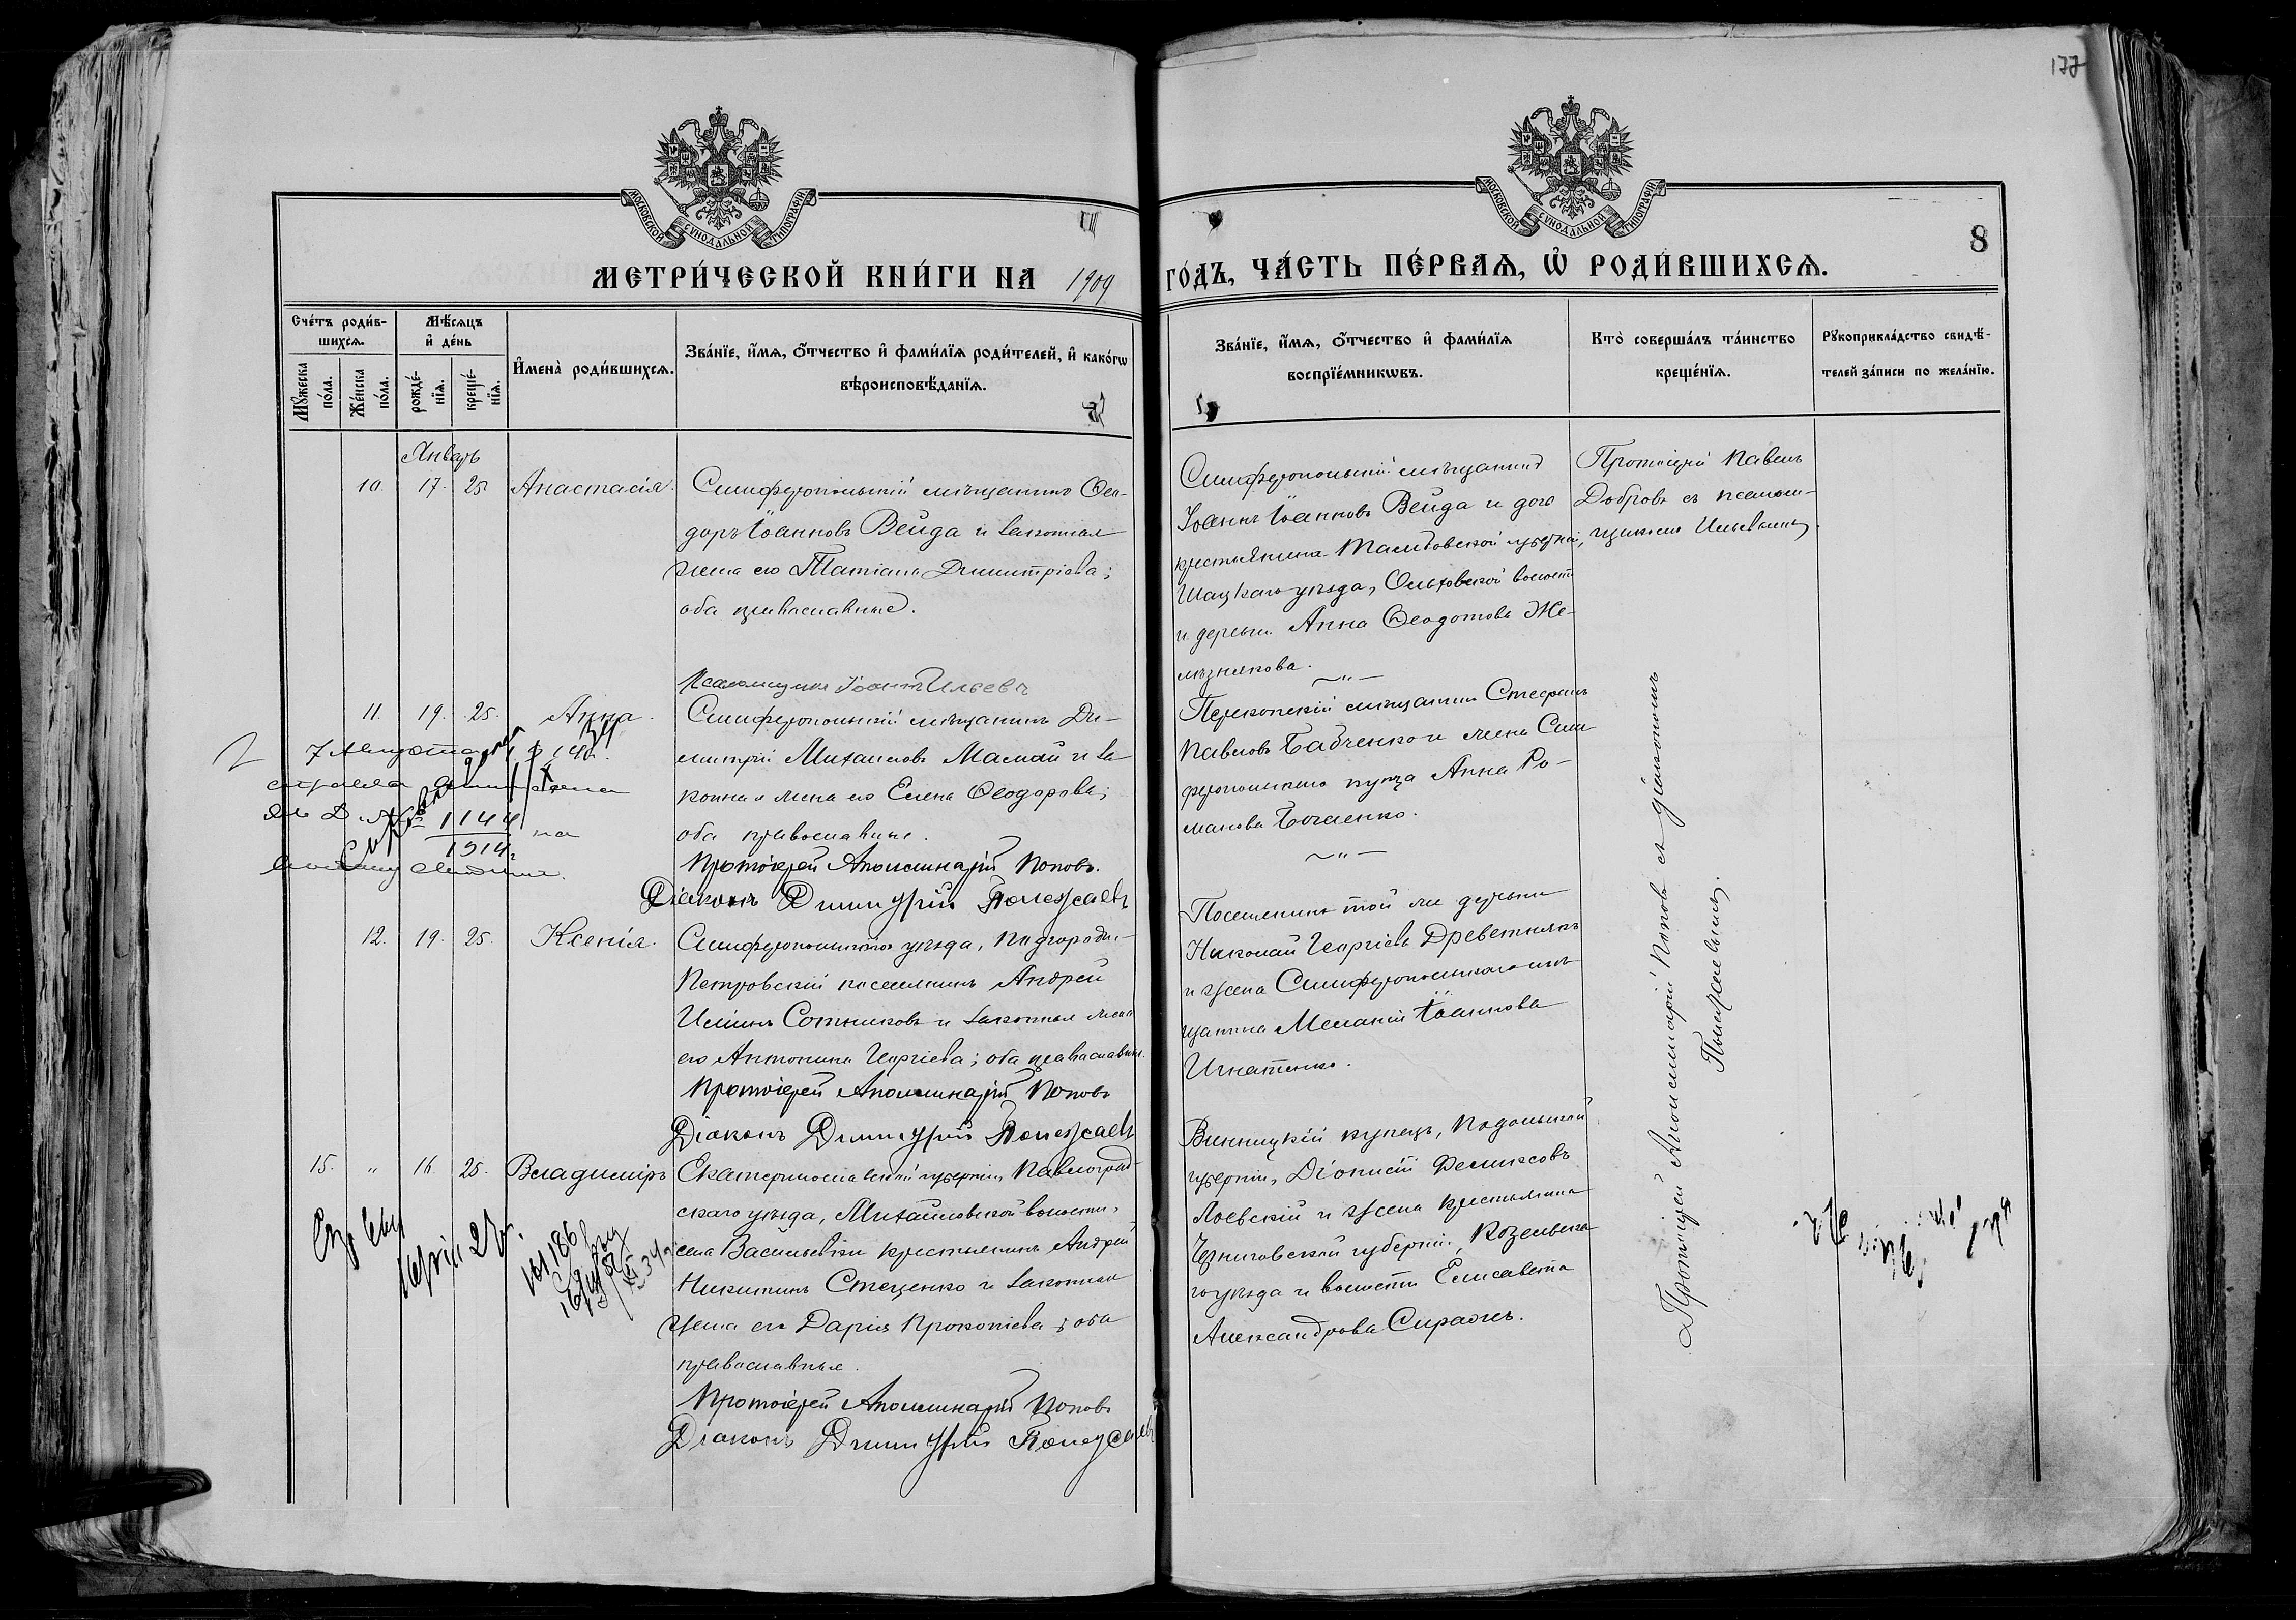 177
МОСКОВСКОЙ СУНОДАЛЬНОЙ ТИПОГРАФІИ.
МОСКОВСКОЙ СУНОДАЛЬНОЙ ТИПОГРАФІИ.
8
МЕТРИ́ЧЕСКОЙ КНИ́ГИ НА 1909 ГО́ДЪ, ЧА́СТЬ ПЕ́РВАѦ, Ѡ҆ РОДИ́ВШИХСѦ.
Сче́тъ роди́в-
шихсѧ.
Мꙋ́жеска по́ла.
Же́нска по́ла.
Мѣ́сѧцъ
и҆ де́нь
рожде́-
нїѧ.
креще́-
нїѧ.
И҆мена̀ роди́вшихсѧ.
Зва́нїе, и҆́мѧ, ѻ҆́тчество и҆ фами́лїѧ роди́телей, и҆ како́гѡ
вѣроисповѣ́данїѧ.
Зва́нїе, и҆́мѧ, ѻ҆́тчество и҆ фами́лїѧ
воспрїе́мникѡвъ.
Кто̀ соверша́лъ та́инство
креще́нїѧ.
Рꙋкоприкла́дство свидѣ́-
телей за́писи по жела́нїю.
Январь
10. 17. 25. Анастасія.
Симферопольскій мѣщанинъ Ѳео-
доръ Іоанновъ Вейда и законная
жена его Татіана Димитріева;
оба православные.
Псаломщикъ Іоаннъ Ильевъ
Симферопольскій мѣщанинъ
Іоаннъ Іоанновъ Вейда и дочь
крестьянина Тамбовской губерніи,
Шацкаго уѣзда, Ольховской волости
и деревни Анна Ѳеодотова Же-
лѣзнякова.
Протоіерей Павелъ
Добровъ съ псалом-
щикомъ Ильевымъ.
11. 19. 25. Анна.
Симферопольскій мѣщанинъ Ди-
митрій Михаиловъ Мамай и за-
конная жена его Елена Ѳеодорова;
оба православные.
Протоіерей Аполлинарій Поповъ.
Діаконъ Димитрій
7 Августа 1914г.
1144
1914г
Перекопскій мѣщанинъ Стефанъ
Павловъ Бабченко и жена Сим-
феропольскаго купца Анна Ро-
манова
12. 19. 25. Ксенія.
Симферопольскаго уѣзда, Подгородне-
Петровскій поселянинъ Андрей
Ильинъ Сотниковъ и законная жена
его Антонина Георгіева; оба православные.
Протоіерей Аполлинарій Поповъ
Діаконъ Димитрій
Поселянинъ той же деревни
Николай Георгіевъ Древетнякъ
и жена Симферопольскаго мѣ-
щанина Меланія Іоаннова
Игнатенко.
15. „ 16. 25. Владиміръ
Екатеринославской губерніи, Павлоград-
скаго уѣзда, Михайловской волости,
села Васильевки крестьянинъ Андрей
Никитинъ Стеценко и законная
жена его Дарія Прокопіева; оба
православные.
Протоіерей Аполлинарій Поповъ
Діаконъ Димитрій
Винницкій купецъ, Подольской
губерніи, Діонисій Феликсовъ
Лоевскій и жена крестьянина
Черниговской губерніи, Козелецка-
го уѣзда и волости Елисавета
Александрова
Протоіерей Аполлинарій Поповъ съ діакономъ